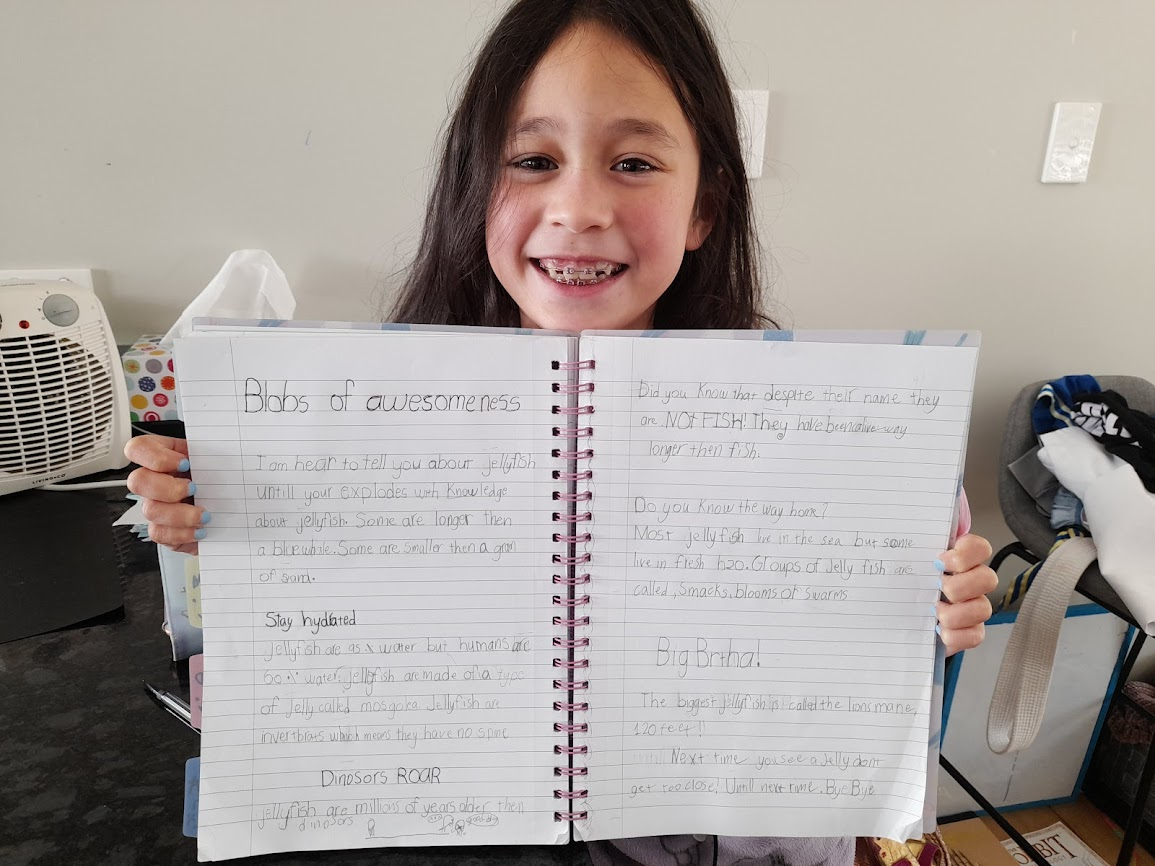 Blobs of awesomeness
I am hear to tell you about jellyfish
untill your explodes with knowledge
about jellyfish. Some are longer then
a blue whale. Some are smaller then a grain
of sand.
Stay hydrated
jellyfish are as water but humans are
60 % water. jellyfish are made of a type
of Jelly called mosgoka Jellyfish are
invertibrats which means they have no spine
Dinosors ROAR
jellyfish are millions of years older then
dinosors
Did you know that despite their name they
are NOT FISH! They have been alive way
longer then fish.
Do you know the way home?
Most jellyfish live in the sea but some
live in fresh h2o. Gloups of Jelly fish are
called, Smacks, blooms or swarms
Big Brtha!
The biggest jellyfish is called the lions mane,
120 feet!!
Next time you see a Jelly dont
get too close! Until next time. Bye Bye
LIVING&CO